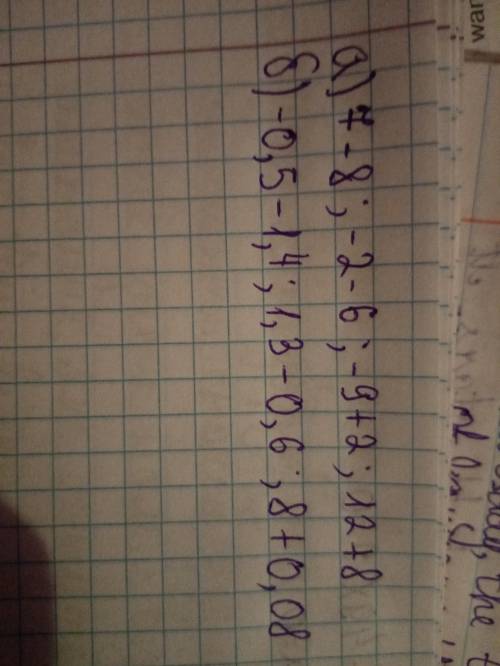 а) 7 - 8; -2 - 6; -9 + 2; 12 + 8
б) -0,5 - 1,4; 1,3 - 0,6; 8 + 0,08